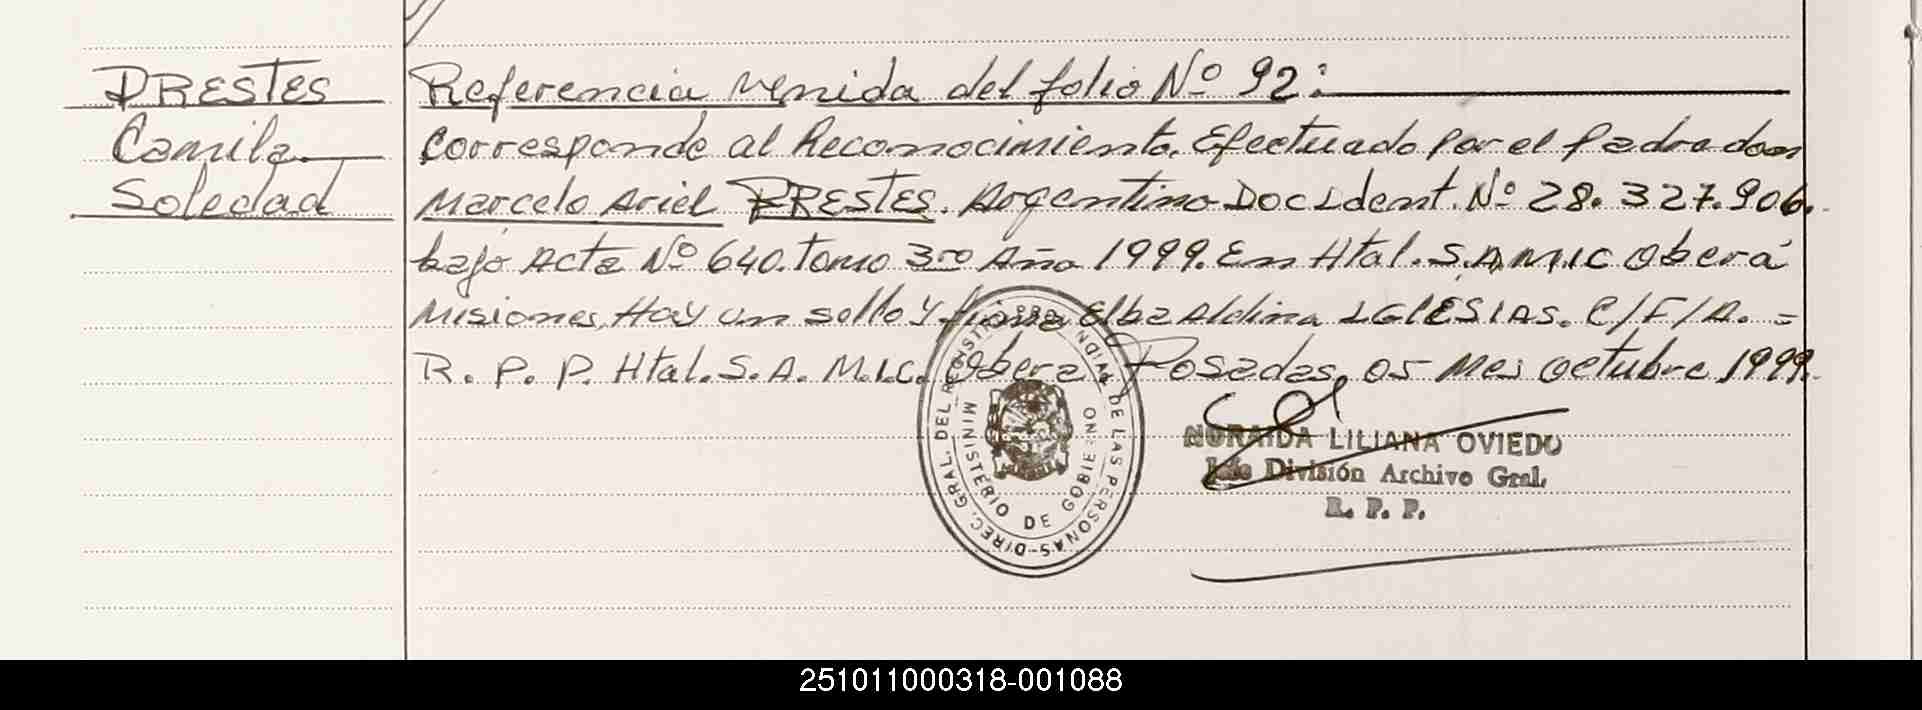 PRESTES
Camila
Soledad
Referencia venida del folio Nº 92:
corresponde al Reconocimiento. Efectuado por el padre don
Marcelo Ariel PRESTES. Argentino Doc Ident. Nº 28.327.906.
bajo Acta Nº 640. tomo 3ro Año 1999. En Htal. S.A.M.I.C Oberá
Misiones, Hay un sello y firma Elba Aldina IGLESIAS. C/F/A. =
R. P. P. Htal. S. A. M.I.C. Obera. Posadas, 05 Mes octubre 1999.
DIREC. GRAL. DEL REGISTRO PROVINCIAL DE LAS PERSONAS-
MINISTERIO DE GOBIERNO
NORAIDA LILIANA OVIEDO
Jefe División Archivo Gral.
R. P. P.
251011000318-001088